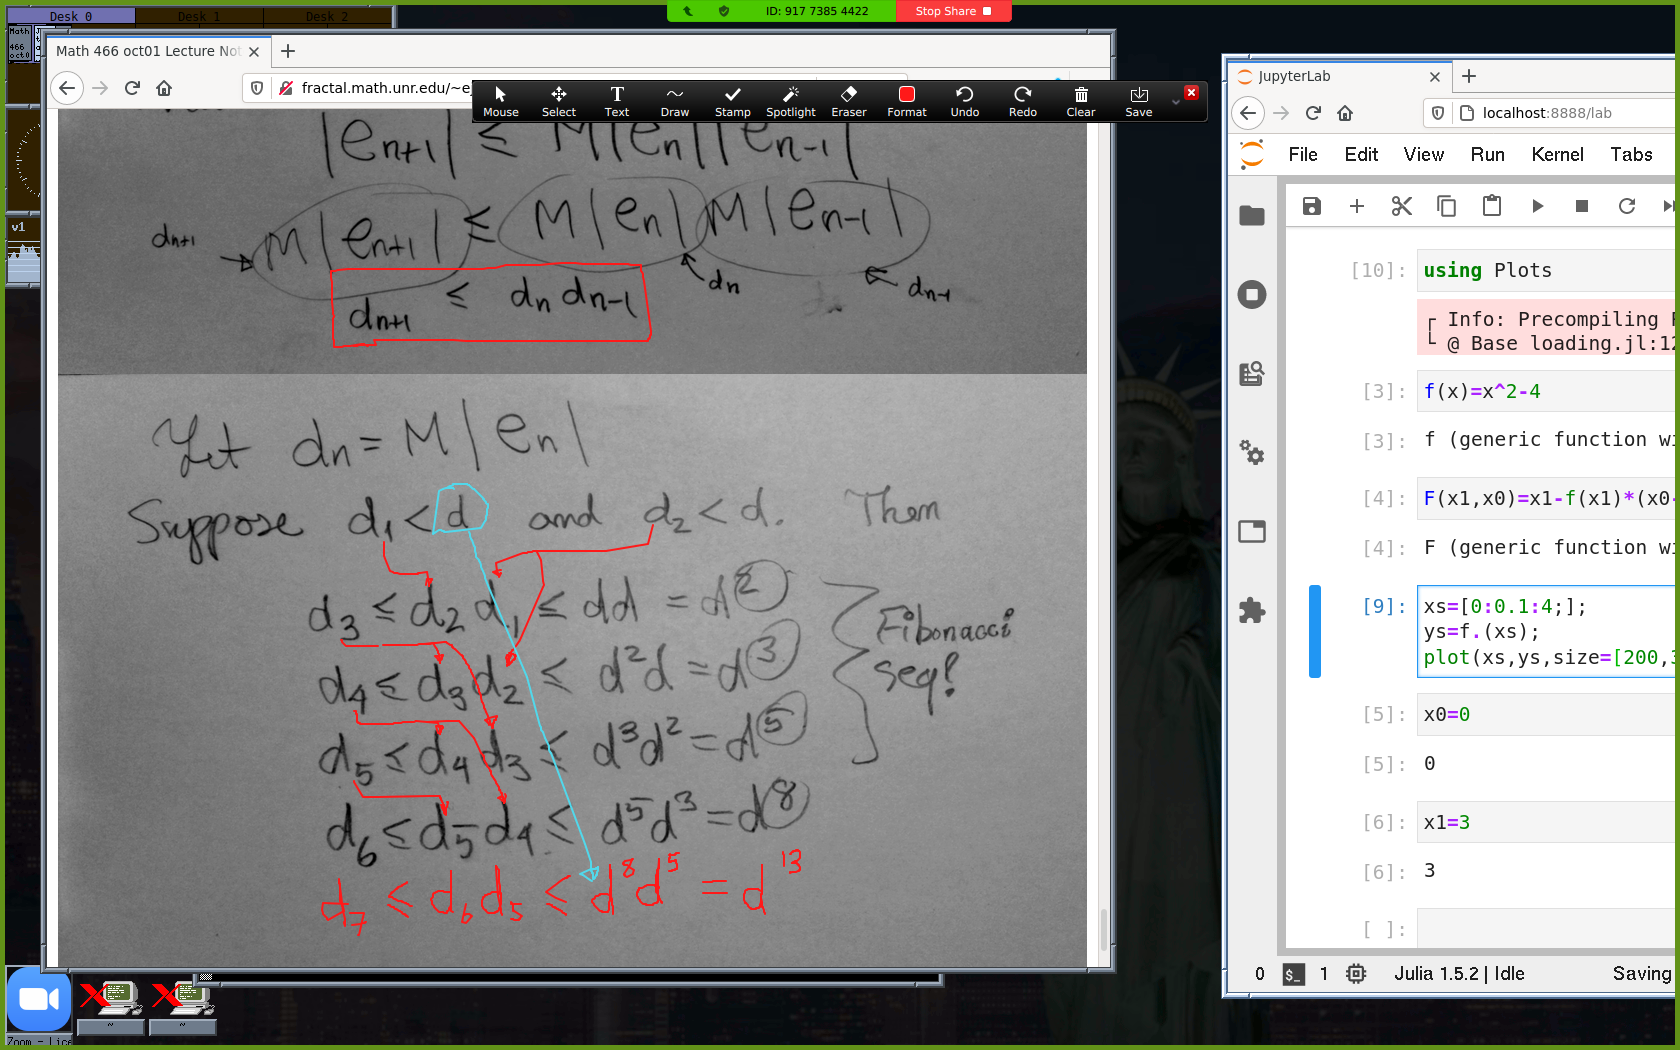 Desk 0 Desk 1 Desk 2
ID: 917 7385 4422 Stop Share
Math 466 oct01 Lecture Not
fractal.math.unr.edu/~e
Mouse Select Text Draw Stamp Spotlight Eraser Format Undo Redo Clear Save
|en+1| ≤ M|en||en-1|
M|en+1| ≤ M|en| M|en-1|
dn+1
dn
dn-1
dn+1 ≤ dn dn-1
Let dn = M|en|
Suppose d1 < d and d2 < d. Then
d3 ≤ d2 d1 ≤ dd = d^2
d4 ≤ d3 d2 ≤ d^2 d = d^3
d5 ≤ d4 d3 ≤ d^3 d^2 = d^5
d6 ≤ d5 d4 ≤ d^5 d^3 = d^8
Fibonacci
seq!
d7 ≤ d6 d5 ≤ d^8 d^5 = d^13
JupyterLab
localhost:8888/lab
File Edit View Run Kernel Tabs
[10]: using Plots
Info: Precompiling
@ Base loading.jl:12
[3]: f(x)=x^2-4
[3]: f (generic function wi
[4]: F(x1,x0)=x1-f(x1)*(x0-
[4]: F (generic function wi
[9]: xs=[0:0.1:4;];
ys=f.(xs);
plot(xs,ys,size=[200,3
[5]: x0=0
[5]: 0
[6]: x1=3
[6]: 3
[ ]:
0 $_ 1 Julia 1.5.2 | Idle Saving
Math
466
oct0
v1
~ ~
Zoom - Lice